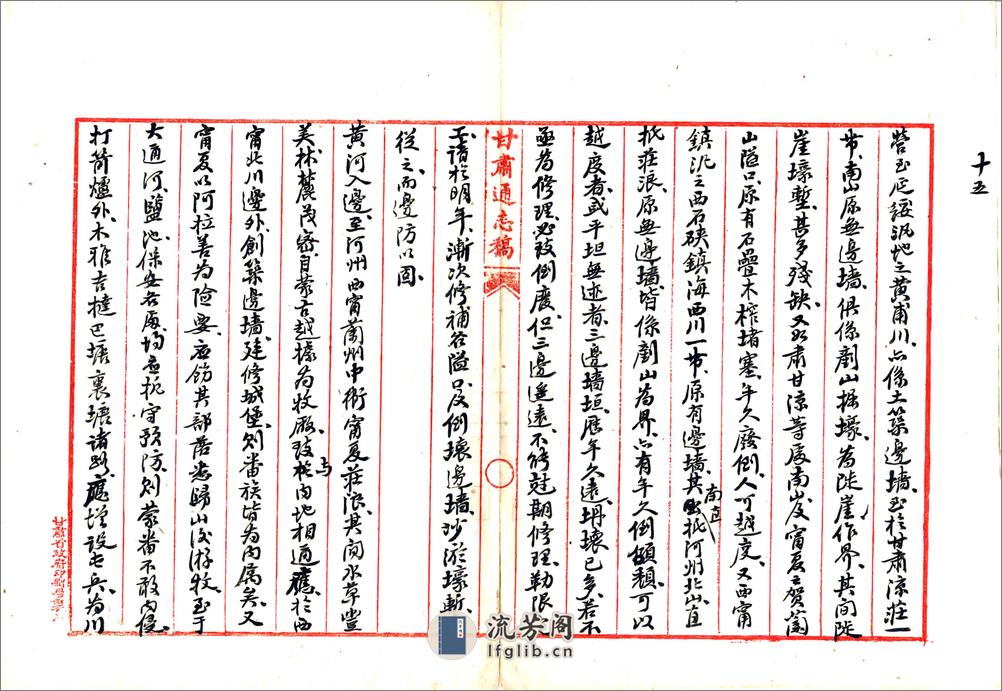 十五
營至延綏汛地之黃甫川亦係土築邊墻至於甘肅涼莊一
帶南山原無邊墻俱係劚山掘壕為陡崖作界其間陡
崖壕塹甚多殘缺又如肅甘涼等處南山及甯夏之賀蘭
山隘口原有石疊木榨堵塞年久廢倒人可越度又西甯
鎮汛之西石硤鎮海西川一帶原有邊墻其南直抵河州北山直
抵莊浪原無邊墻皆係劚山為界亦有年久倒傾頹可以
越度者或平坦無迹者三邊墻垣歷年久遠坍壞已多若不
亟為修理必致倒廢但三邊遥遠不能尅期修理勒限
於明年漸次修補各隘口及倒壞邊墻沙淤壕塹
從之而邊防以固
黃河入邊至河州西甯蘭州中衛甯夏莊浪其間水草豐
美林麓茂密自蒙古越據為牧厰致於內地相通應於西
與
甯北川邊外創築邊墻建修城堡則番族皆為內屬矣又
甯夏以阿拉善為險要應飭其部落悉歸山後游牧至于
大通河鹽池保安各處均應扼守預防則蒙番不敢內侵
打箭爐外木雅吉撻巴塘裏塘諸路應增設屯兵為川
甘肅通志稿
甘肅省政府印刷局
流芳阁
lfglib.cn